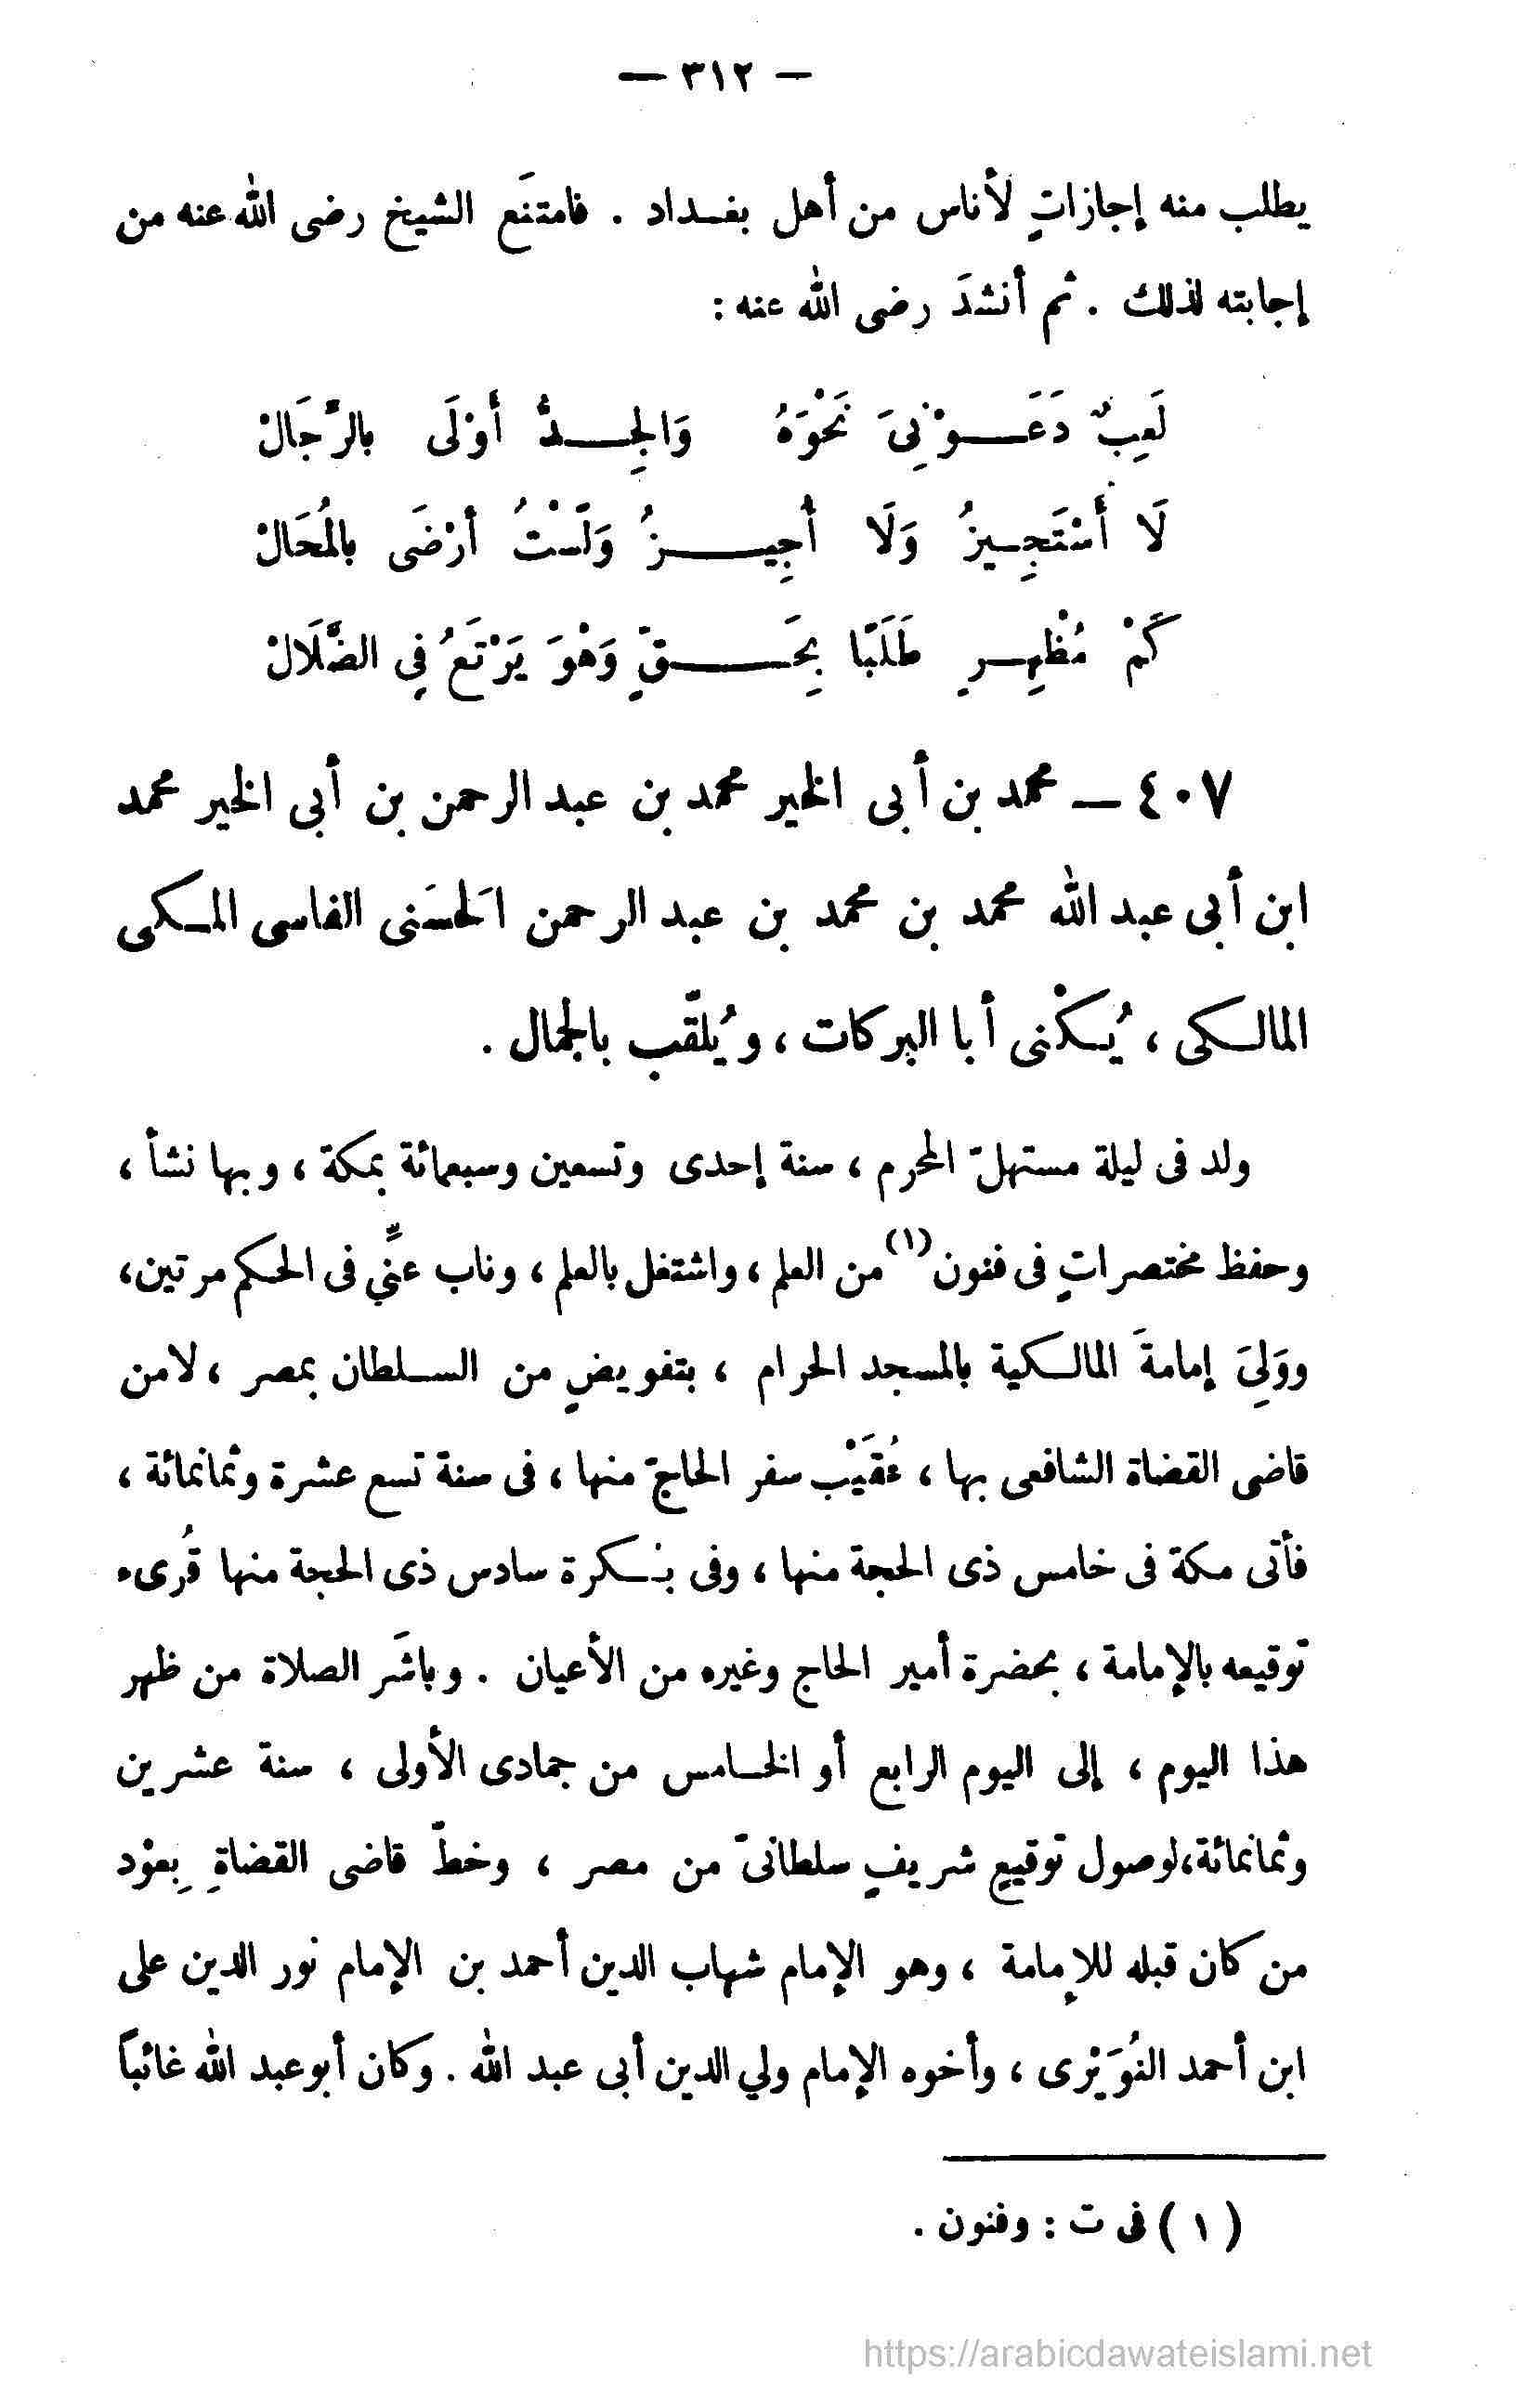 — ٣١٢ —
يطلب منه إجازاتٍ لأناس من أهل بغـداد . فامتنَع الشيخ رضى الله عنه من
إجابته لذلك . ثم أنشدَ رضى الله عنه :
لَعِبٌ دَعَـــوْنِىَ نَحْوَهُ وَالجِـــدُّ أَوْلَى بالرِّجَالْ
لَا أَسْتَجِـيزُ وَلَا أُجِيـــزُ وَلَسْتُ أرْضَى بالمُحَالْ
كَمْ مُظْهِـرٍ طَلَبًا بِحَـــقٍّ وَهْوَ يَرْتَعُ فِي الضَّلَالْ
٤٠٧ — محمد بن أبى الخير محمد بن عبد الرحمن بن أبى الخير محمد
ابن أبى عبد الله محمد بن محمد بن عبد الرحمن الحَسَنى الفاسى المـكى
المالـكى ، يُـكْنى أبا البركات ، ويُلقّب بالجمال .
ولد فى ليلة مستهلّ المحرم ، سنة إحدى وتسعين وسبعمائة بمكة ، وبها نشأ ،
وحفظ مختصراتٍ فى فنون (١) من العلم ، واشتغل بالعلم ، وناب عنِّي فى الحـكم مرتين،
ووَلِىَ إمامةَ المالـكية بالمسجد الحرام ، بتفويضٍ من السـلطان بمصر ، لا من
قاضى القضاة الشافعى بها ، عُقَيْب سفر الحاجّ منها ، فى سنة تسع عشرة وثمانمائة ،
فأتى مكة فى خامس ذى الحجة منها ، وفى بـكرة سادس ذى الحجة منها قُرىء
توقيعه بالإمامة ، بحضرة أمير الحاج وغيره من الأعيان . وباشَر الصلاة من ظهر
هذا اليوم ، إلى اليوم الرابع أو الخـامس من جمادى الأولى ، سنة عشرين
وثمانمائة،لوصول توقيعٍ شريفٍ سلطانىّ من مصر ، وخطّ قاضى القضاةِ بِعوْد
من كان قبله للإمامة ، وهو الإمام شهاب الدين أحمد بن الإمام نور الدين على
ابن أحمد النُوَيْرى ، وأخوه الإمام ولي الدين أبى عبد الله . وكان أبو عبد الله غائباً
( ١ ) فى ت : وفنون .
https://arabicdawateislami.net